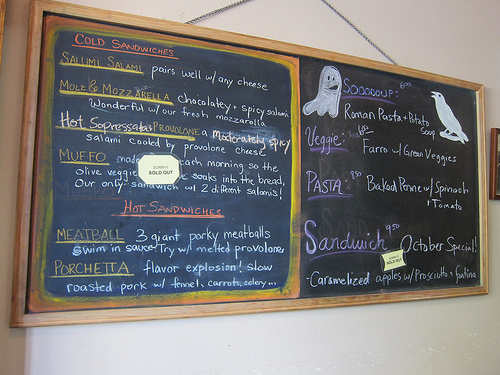 COLD SANDWICHES
SALUMI SALAMI pairs well w/ any cheese
MOLE & MOZZARELLA Chocolatey + spicy salami.
Wonderful w/ our fresh mozzarella
Hot Sopressata & PROVOLONE a moderately spicy
salami cooled by provolone cheese
MUFFO made each morning so the
olive veggie soaks into the bread,
Our only sandwich w/ 2 different salamis!
SOLD OUT
HOT SANDWICHES
MEATBALL 3 giant porky meatballs
swim in sauce Try w/ melted provolone
PORCHETTA flavor explosion! slow
roasted pork w/ fennel, carrots, celery...
Soooooup:
Roman Pasta + Potato
Soup
Veggie:
Farro w/ Green Veggies
PASTA: Baked Penne w/ Spinach
+ Tomato
Sandwich 9.50 October Special!
SOLD OUT
-Caramelized apples w/ Prosciutto + fontina